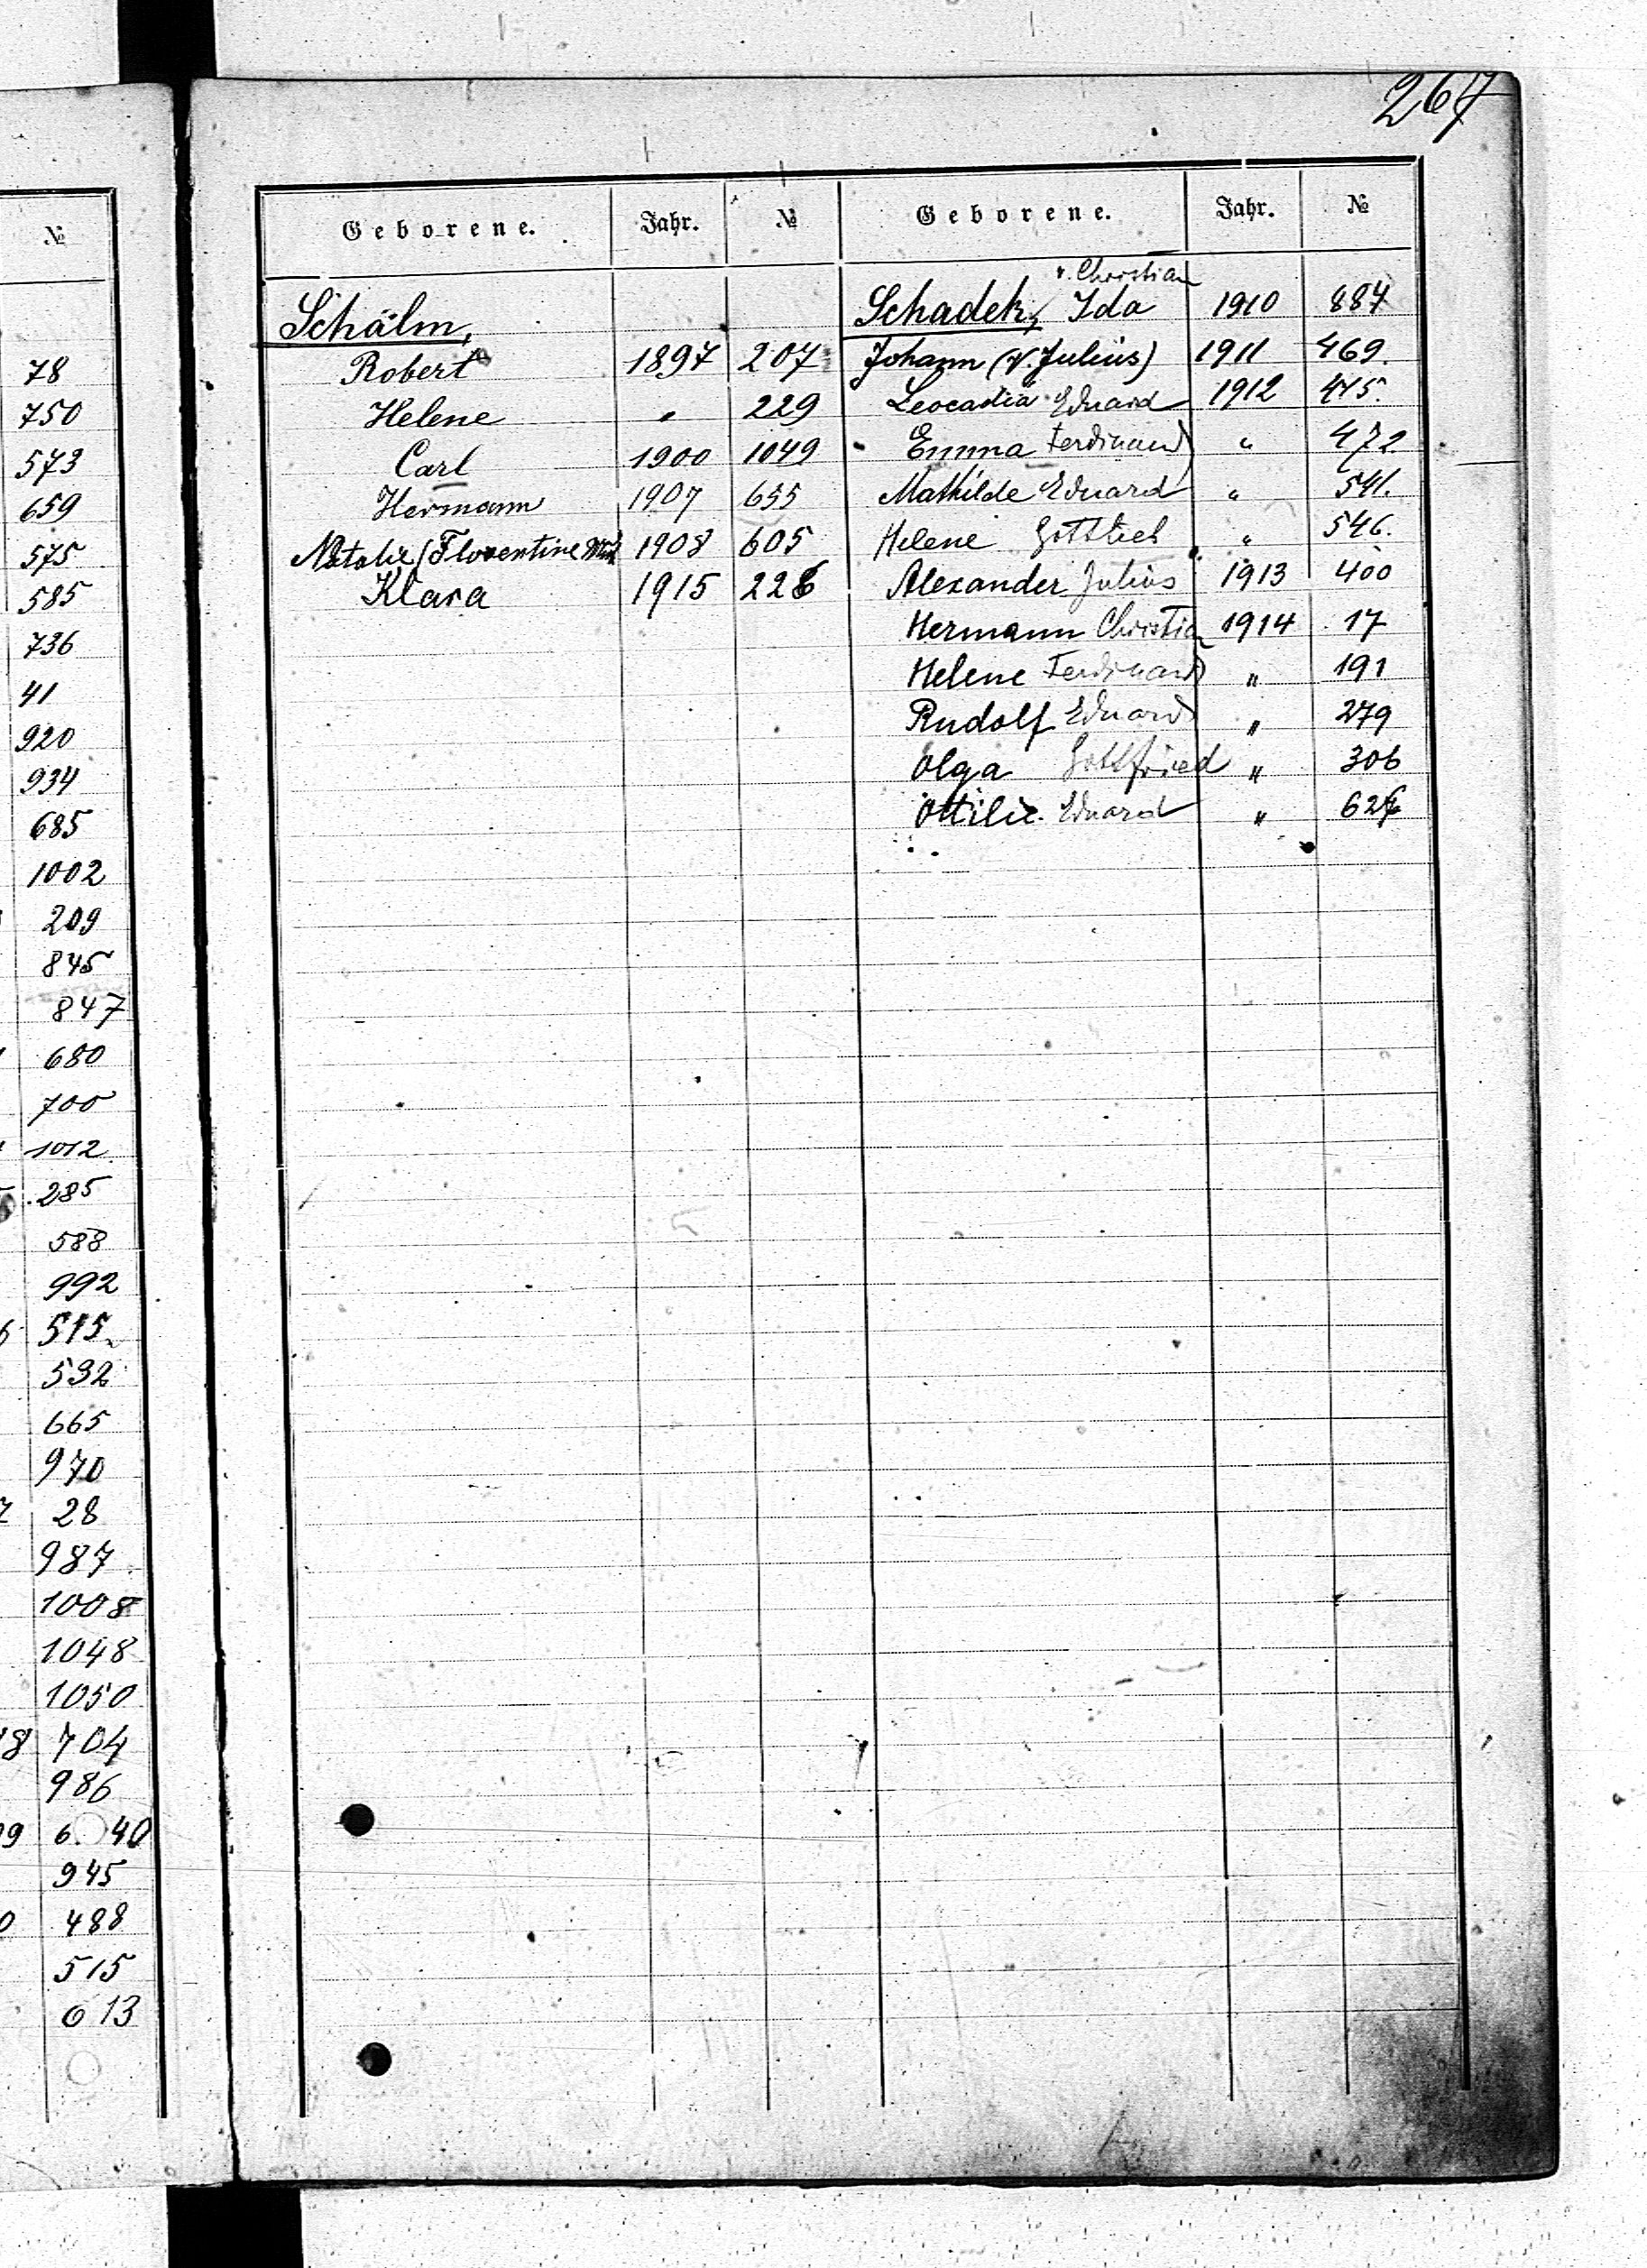 267
№
78
750
573
659
575
585
736
41
920
934
685
1002
209
845
847
680
700
1012
285
588
992
515
532
665
970
28
987
1008
1048
1050
18 704
986
09 6 40
945
0 488
515
613
Geborene. Jahr. №
Schälm,
Robert 1897 207
Helene " 229
Carl 1900 1049
Hermann 1907 655
Natalie (Florentine 1908 605
Klara 1915 226
Geborene. Jahr. №
v. Christian
Schadek, Ida 1910 884
Johann (v. Julius) 1911 469.
Leocadia Eduard 1912 415.
Emma Ferdinand " 472
Mathilde Eduard " 541.
Helene Gottlieb " 546.
Alexander Julius 1913 400
Hermann Christian 1914 17
Helene Ferdinand " 191
Rudolf Eduard " 279
Olga Gottfried " 306
Ottilie. Eduard "